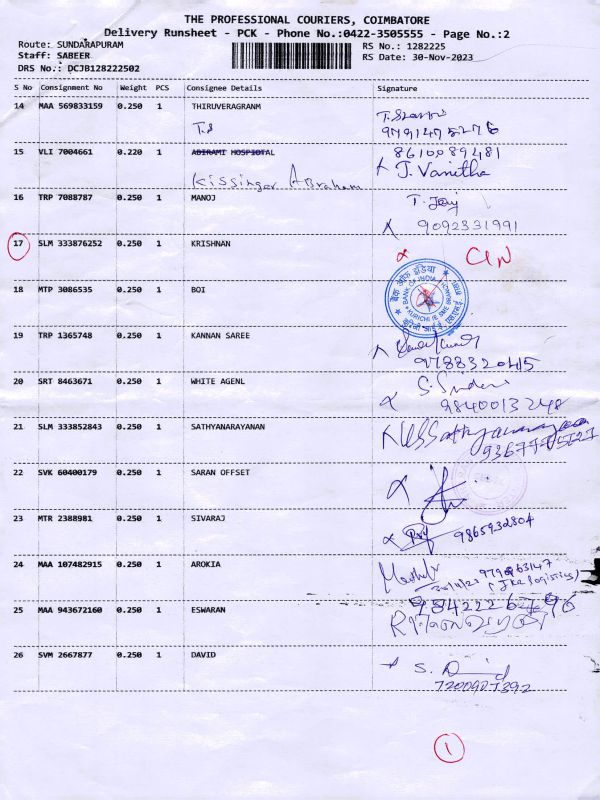 THE PROFESSIONAL COURIERS, COIMBATORE
Delivery Runsheet - PCK - Phone No.:0422-3505555 - Page No.:2
Route: SUNDARAPURAM
RS No.: 1282225
Staff: SABEER
RS Date: 30-Nov-2023
DRS No.: DCJB128222502
S No Consignment No Weight PCS Consignee Details Signature
14 MAA 569833159 0.250 1 THIRUVERAGRANM
T.S
9791475276
15 VLI 7004661 0.220 1 ABIRAMI HOSPIOTAL 8610089481
Kissinger Abraham J. Vanitha
16 TRP 7088787 0.250 1 MANOJ T. Jay
9092331991
17 SLM 333876252 0.250 1 KRISHNAN
बैंक ऑफ़ इंडिया
BANK OF INDIA
18 MTP 3086535 0.250 1 BOI
19 TRP 1365748 0.250 1 KANNAN SAREE
9788332045
20 SRT 8463671 0.250 1 WHITE AGENL
9840013248
21 SLM 333852843 0.250 1 SATHYANARAYANAN
22 SVK 60400179 0.250 1 SARAN OFFSET
23 MTR 2388981 0.250 1 SIVARAJ 9865932804
24 MAA 107482915 0.250 1 AROKIA
25 MAA 943672160 0.250 1 ESWARAN
26 SVM 2667877 0.250 1 DAVID
S. David
7200907392
1